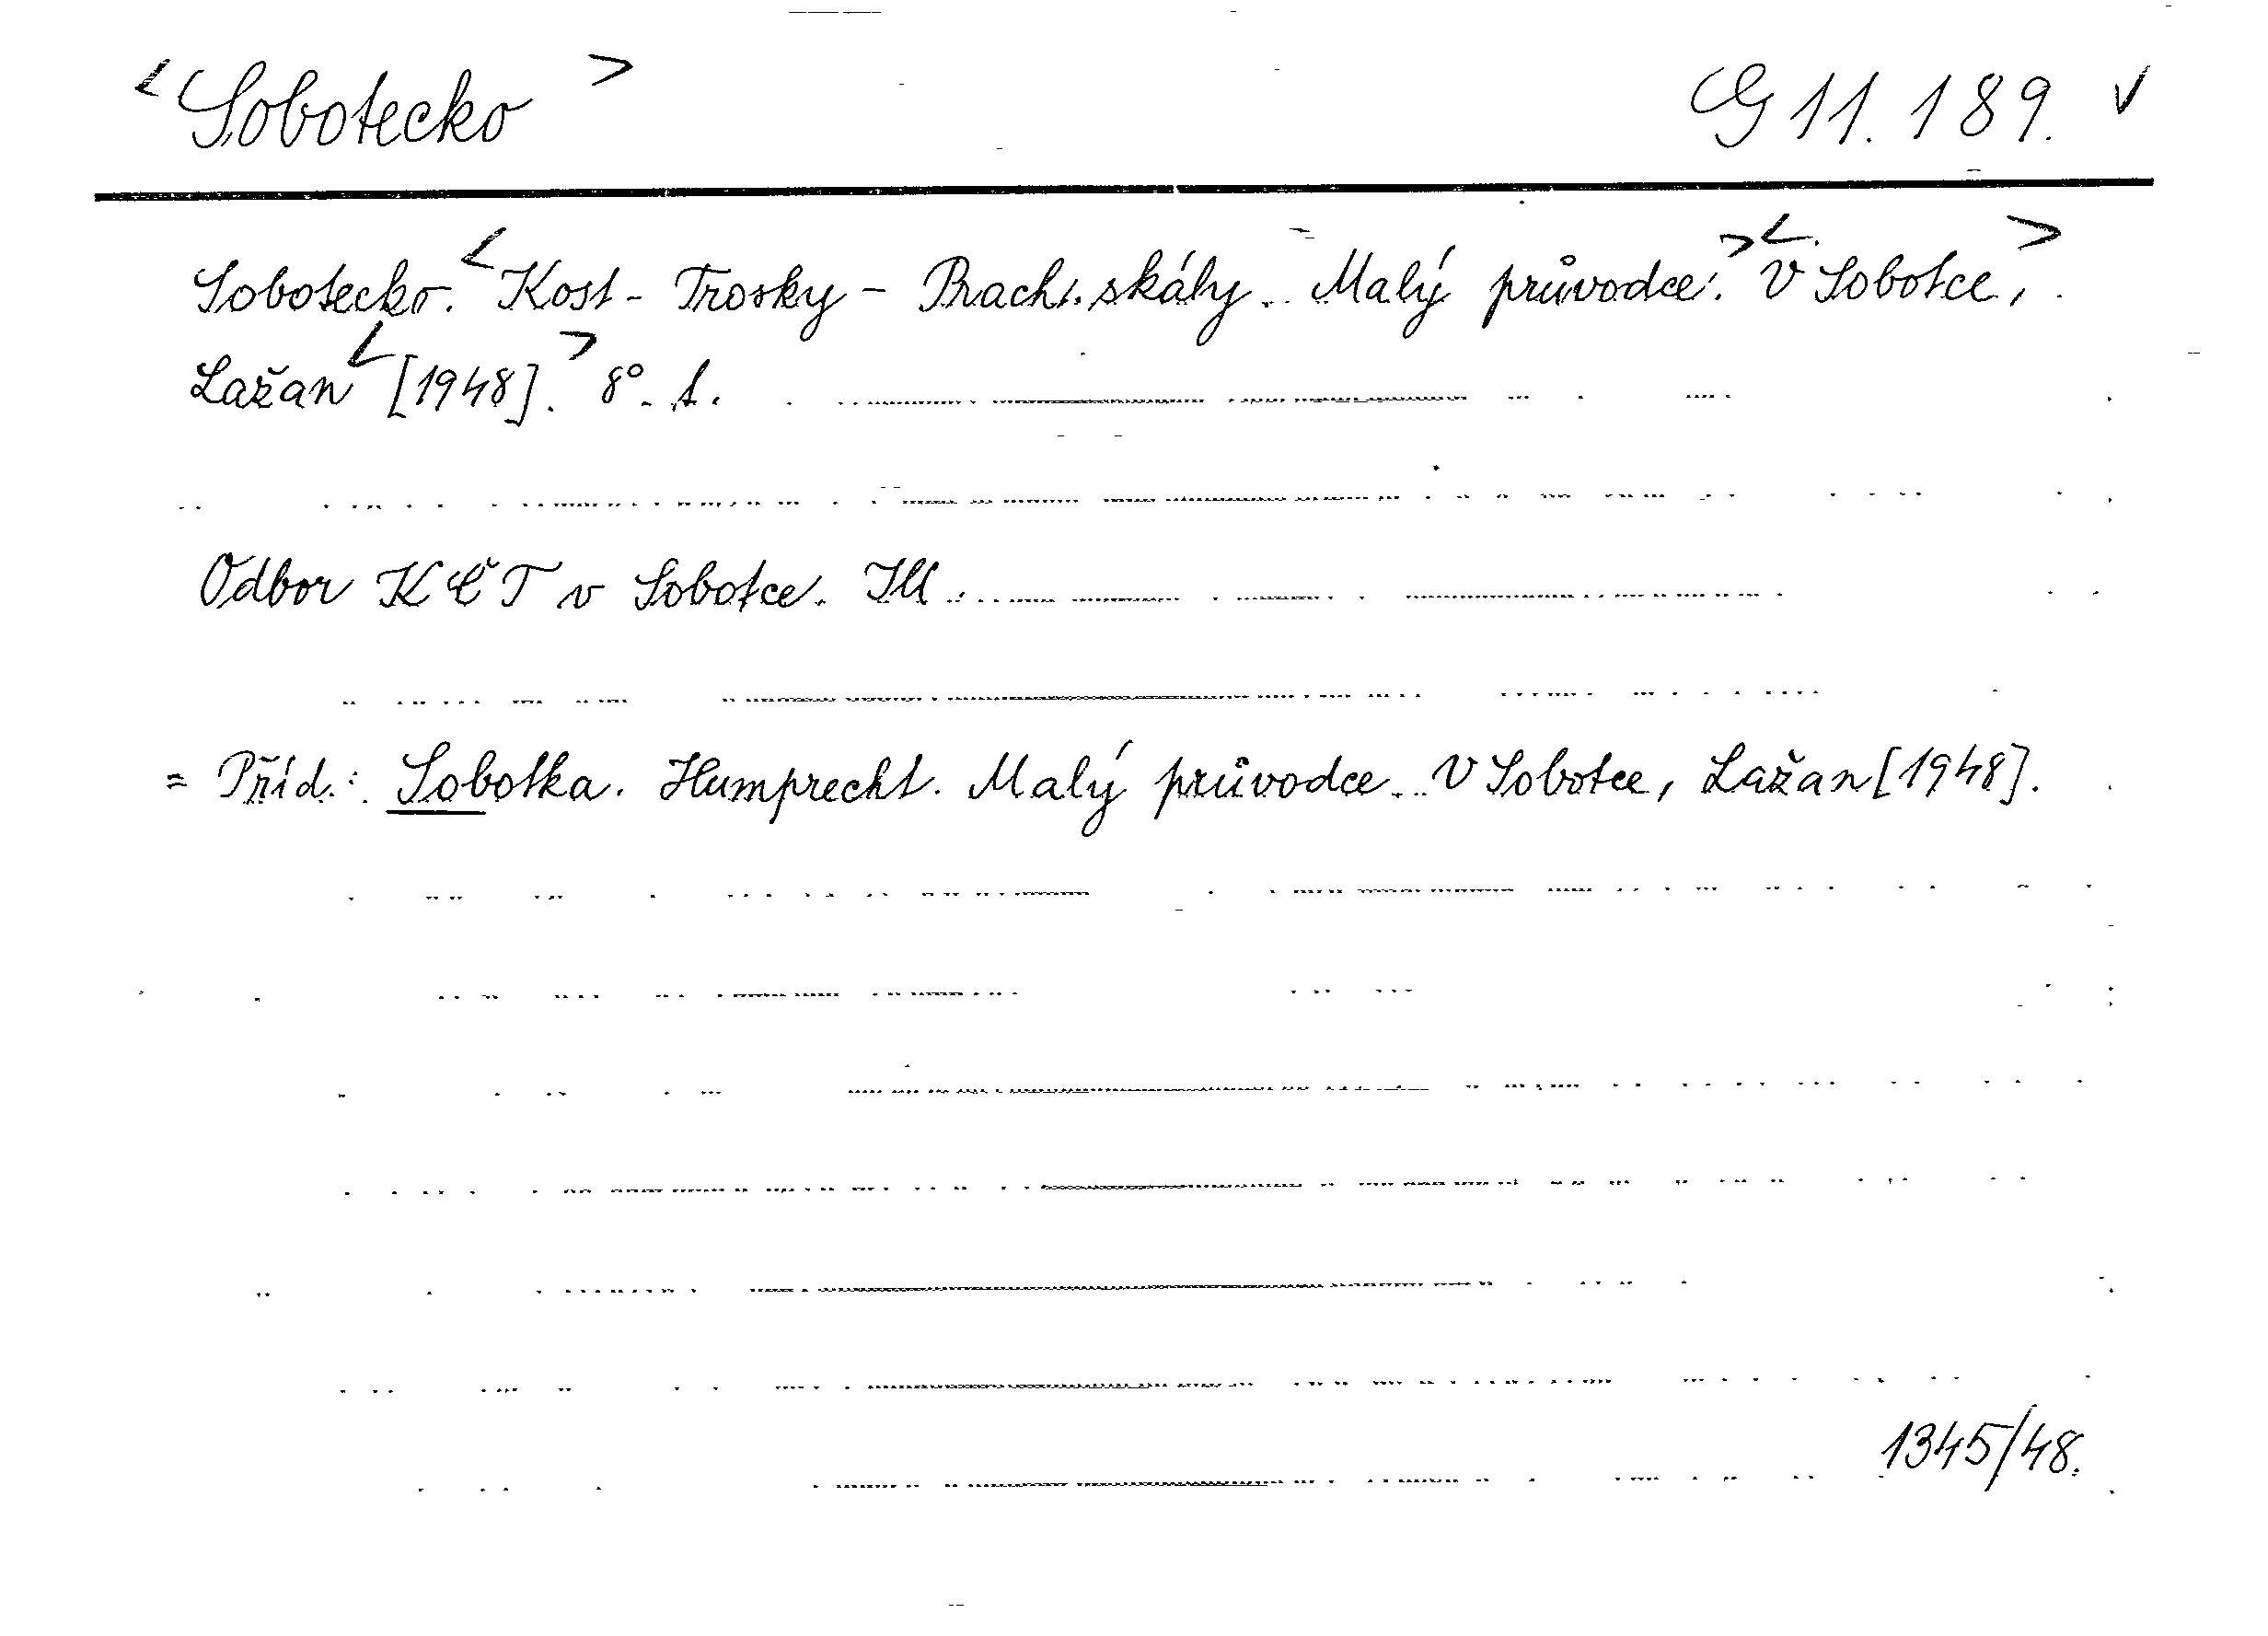 <Sobotecko> G 11.189. ✓
Sobotecko. <Kost - Trosky - Prach. skály. Malý průvodce.> <V Sobotce,>
Lažan <[1948].> 8°. 1.
Odbor KČT v Sobotce. Ill.
= Příd.: Sobotka. Humprecht. Malý průvodce. V Sobotce, Lažan [1948].
1345/48.